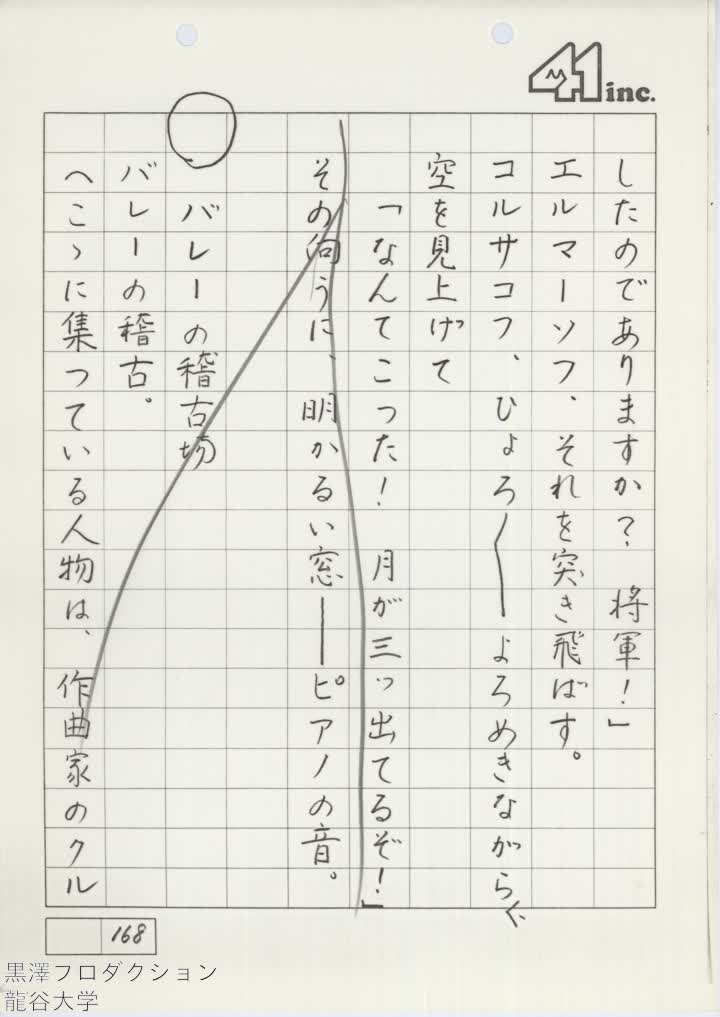 41 inc.
したのでありますか？　将軍！」
エルマーソフ、それを突き飛ばす。
コルサコフ、ひょろ〳〵よろめきながら、
空を見上げて
「なんてこった！　月が三つ出てるぞ！」
その向うに、明かるい窓――ピアノの音。
○　バレーの稽古場
バレーの稽古。
へこゝに集つている人物は、作曲家のクル
168
黒澤プロダクション
龍谷大学